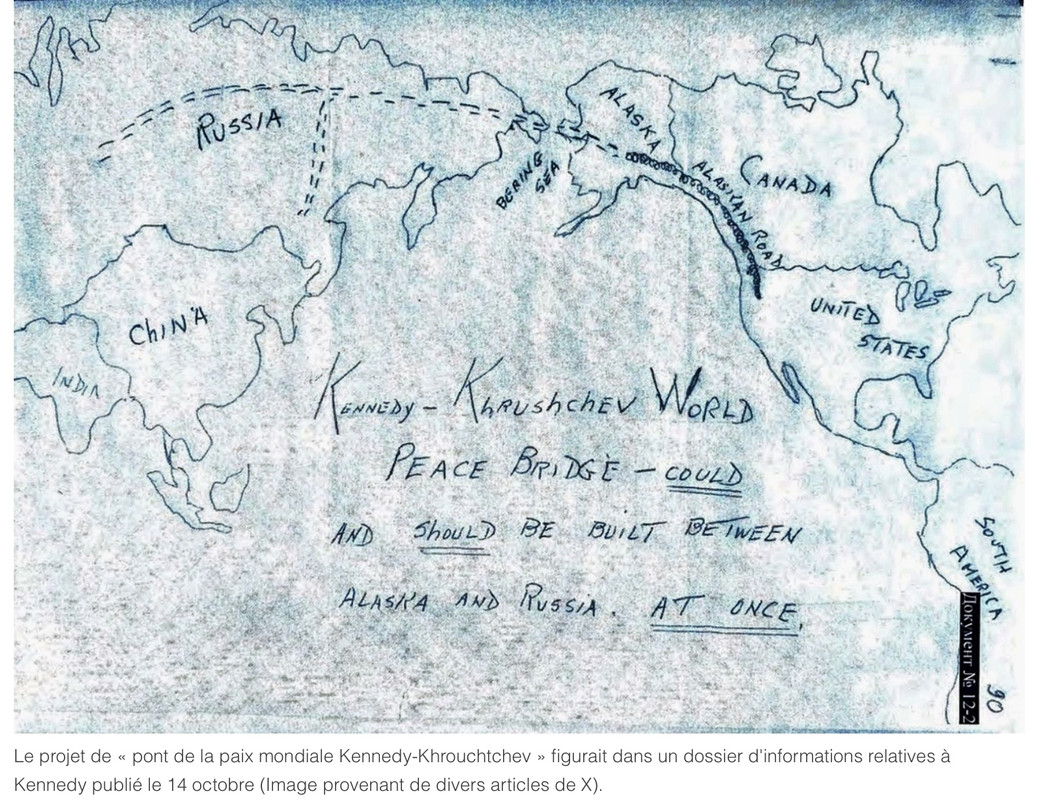 RUSSIA
ALASKA
BERING
SEA
ALASKAN ROAD
CANADA
CHINA
INDIA
UNITED
STATES
KENNEDY – KHRUSHCHEV WORLD
PEACE BRIDGE – COULD
AND SHOULD BE BUILT BETWEEN
ALASKA AND RUSSIA. AT ONCE,
SOUTH
AMERICA
Документ № 12-2
90
Le projet de « pont de la paix mondiale Kennedy-Khrouchtchev » figurait dans un dossier d'informations relatives à
Kennedy publié le 14 octobre (Image provenant de divers articles de X).